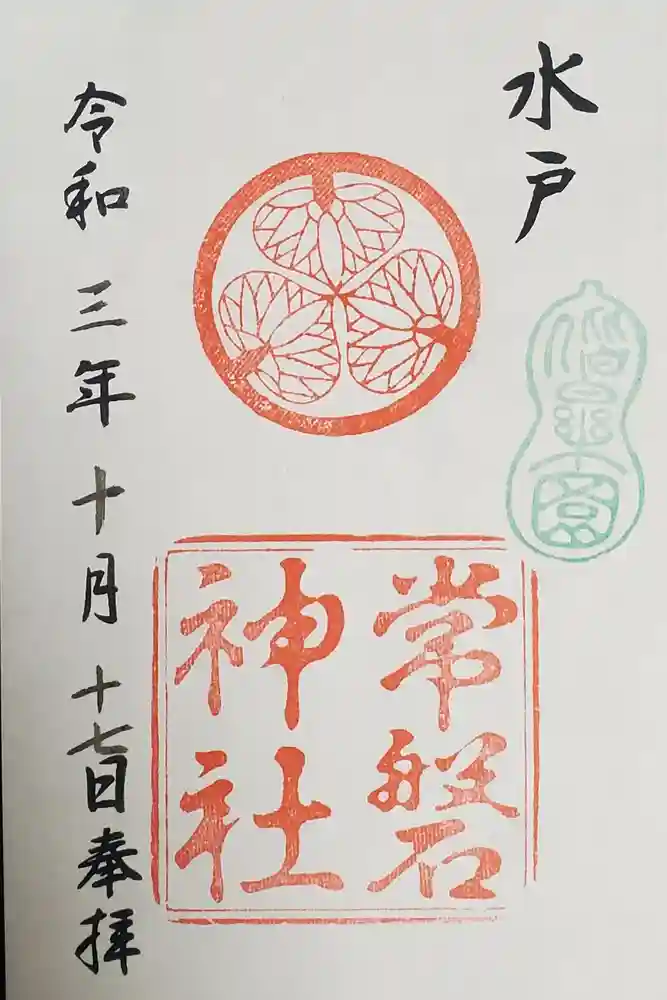 水戸
偕楽園
常磐
神社
令和三年十月十七日奉拝